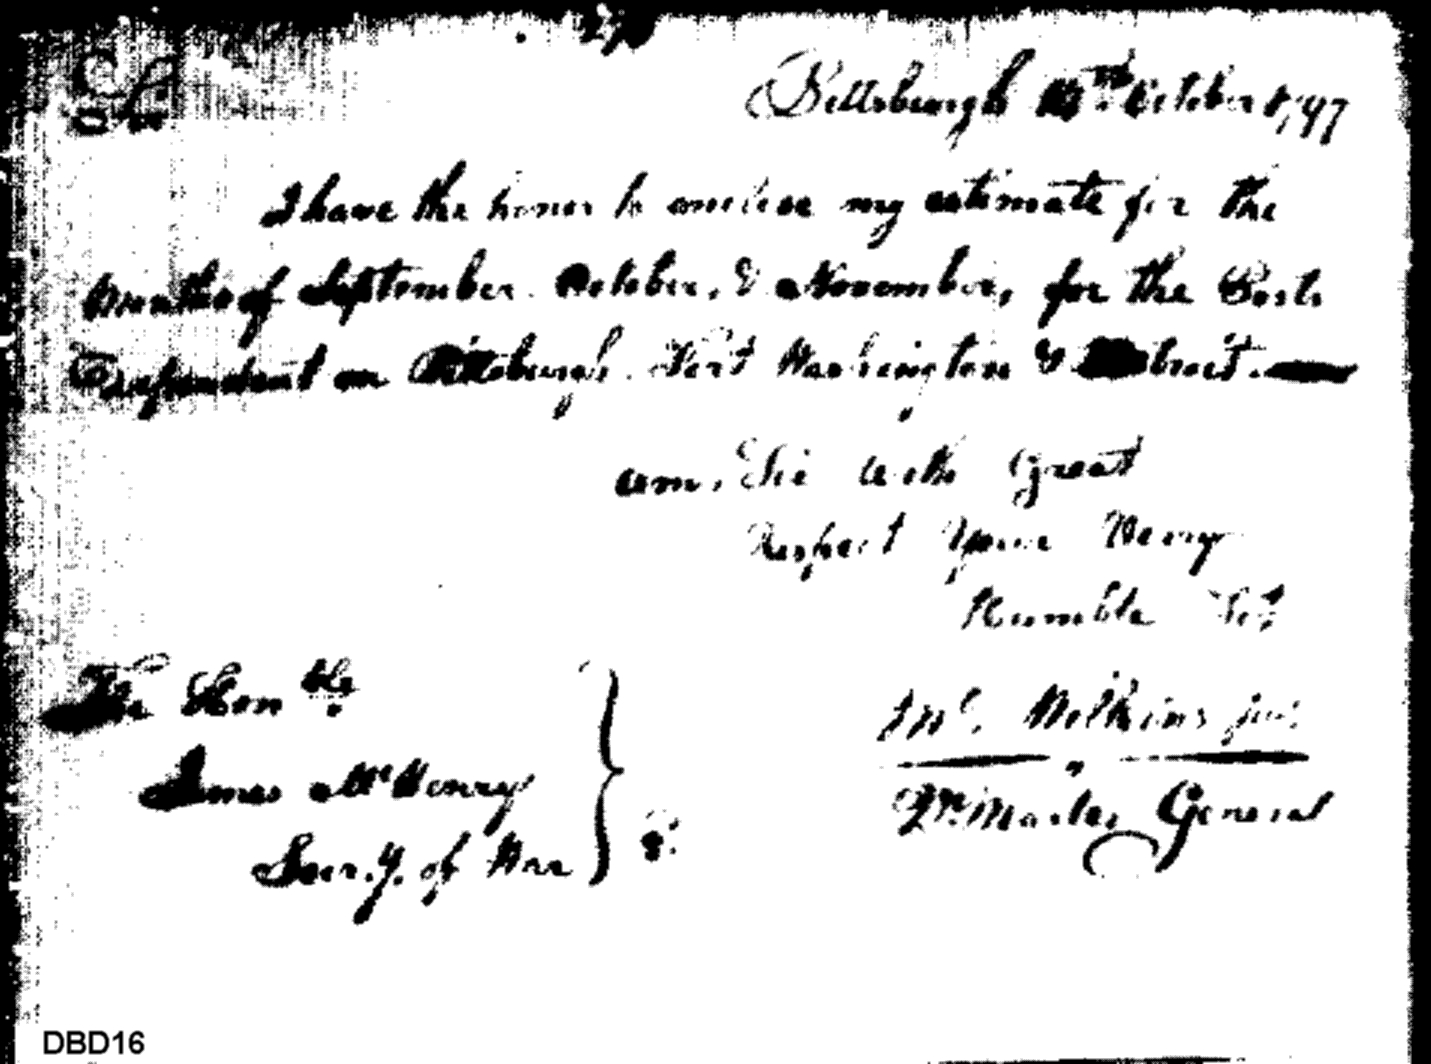 Sir
Pittsburgh October 1797
I have the honor to enclose my estimate for the
Months of September. October, & November, for the Posts
Dependant on Pittsburgh. Fort Washington & Detroit.
am, Sir with Great
Respect Your Very
Humble Set
The Honble.
James McHenry
Secr.y. of War
Jno. Wilkins jun.
Qr. Master General
DBD16